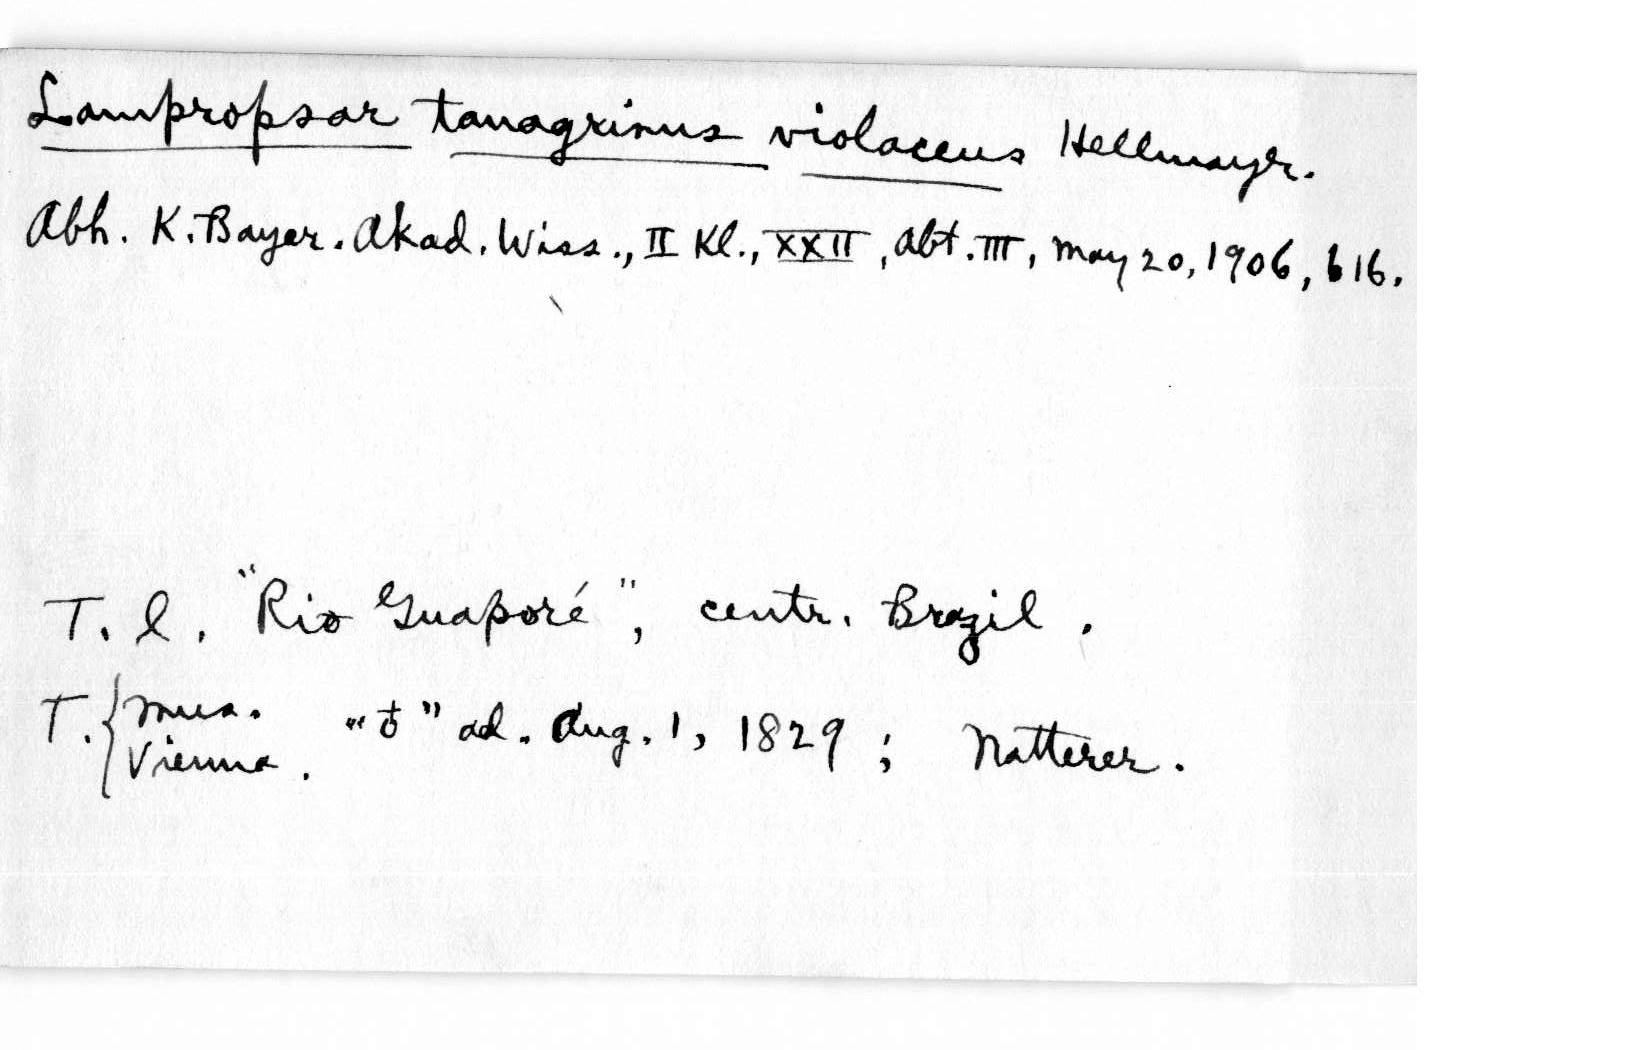 Lampropsar tanagrinus violaceus Hellmayr.
Abh. K. Bayer. Akad. Wiss., II Kl., XXII, Abt. III, May 20, 1906, 616.
T. l. "Rio Guaporé", centr. Brazil.
T. { Mus. Vienna. "♂" ad. Aug. 1, 1829; Natterer.